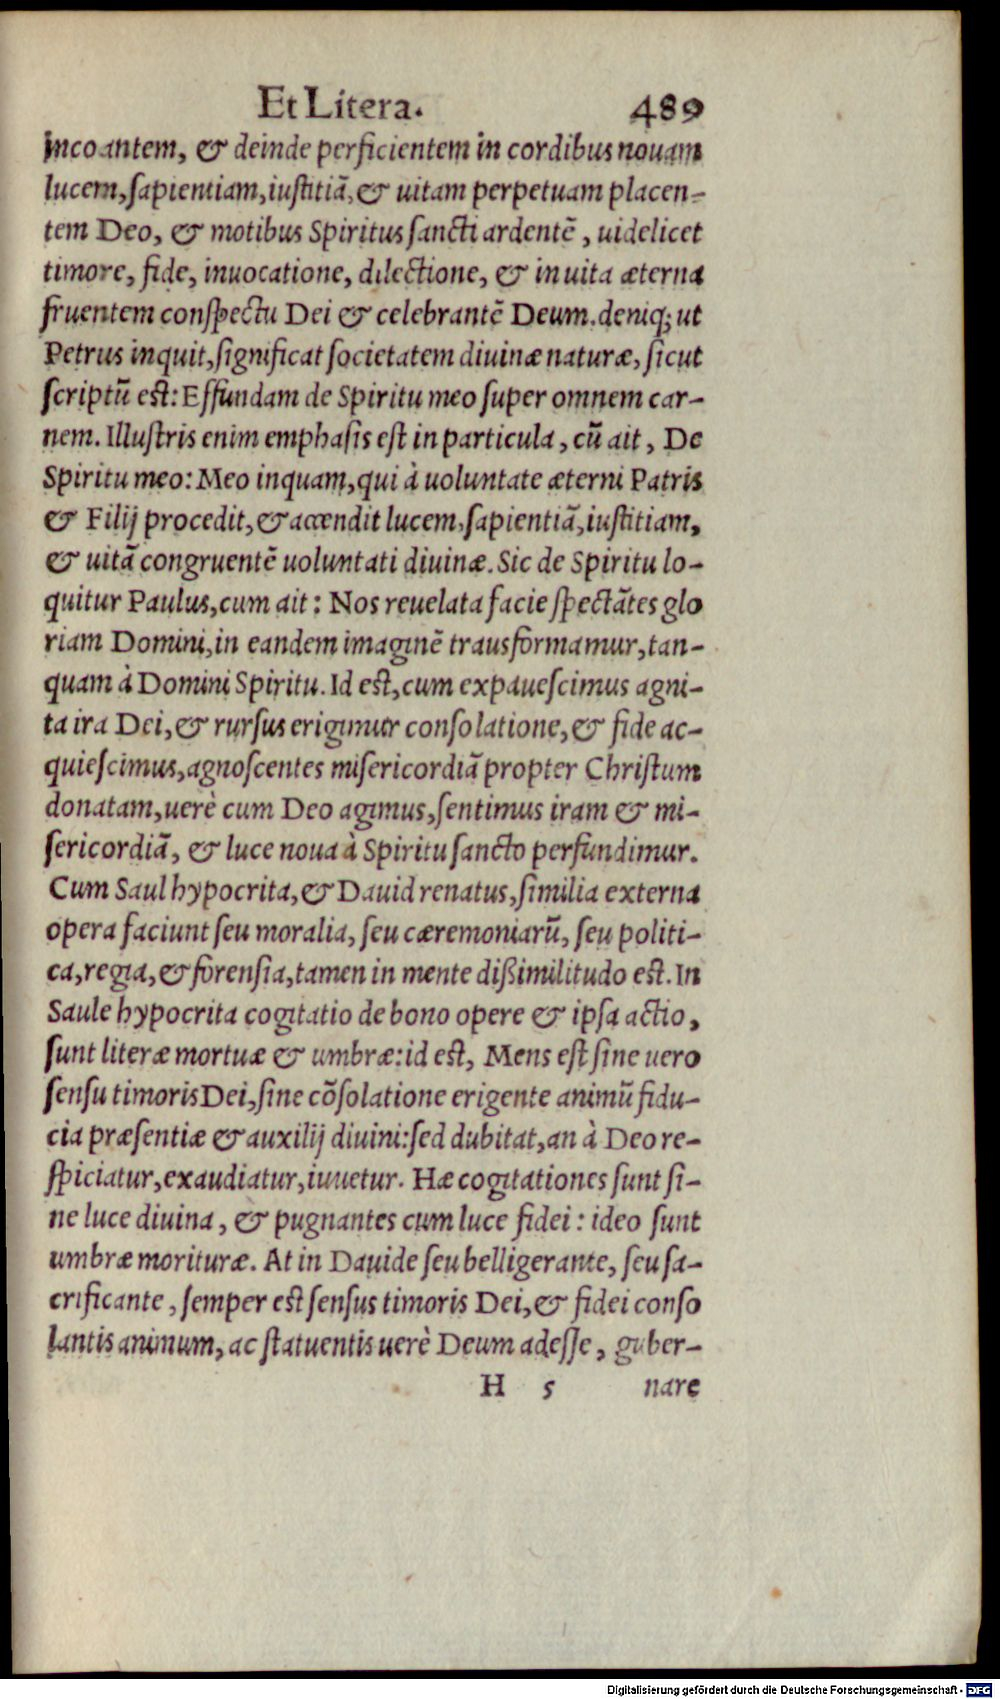 Et Litera. 489
incoantem, & deinde perficientem in cordibus nouam
lucem, sapientiam, iustitiā, & uitam perpetuam placen-
tem Deo, & motibus Spiritus sancti ardentē, uidelicet
timore, fide, inuocatione, dilectione, & in uita æterna
fruentem conspectu Dei & celebrantē Deum. deniq; ut
Petrus inquit, significat societatem diuinæ naturæ, sicut
scriptū est: Effundam de Spiritu meo super omnem car-
nem. Illustris enim emphasis est in particula, cū ait, De
Spiritu meo: Meo inquam, qui à uoluntate æterni Patris
& Filij procedit, & accendit lucem, sapientiā, iustitiam,
& uitā congruentē uoluntati diuinæ. Sic de Spiritu lo-
quitur Paulus, cum ait: Nos reuelata facie spectātes glo
riam Domini, in eandem imaginē trausformamur, tan-
quam à Domini Spiritu. Id est, cum expauescimus agni-
ta ira Dei, & rursus erigimur consolatione, & fide ac-
quiescimus, agnoscentes misericordiā propter Christum
donatam, uerè cum Deo agimus, sentimus iram & mi-
sericordiā, & luce noua à Spiritu sancto perfundimur.
Cum Saul hypocrita, & Dauid renatus, similia externa
opera faciunt seu moralia, seu cæremoniarū, seu politi-
ca, regia, & forensia, tamen in mente dißimilitudo est. In
Saule hypocrita cogitatio de bono opere & ipsa actio,
sunt literæ mortuæ & umbræ: id est, Mens est sine uero
sensu timoris Dei, sine cōsolatione erigente animū fidu-
cia præsentiæ & auxilij diuini: sed dubitat, an à Deo re-
spiciatur, exaudiatur, iuuetur. Hæ cogitationes sunt si-
ne luce diuina, & pugnantes cum luce fidei: ideo sunt
umbræ morituræ. At in Dauide seu belligerante, seu sa-
crificante, semper est sensus timoris Dei, & fidei conso
lantis animum, ac statuentis uerè Deum adesse, guber-
H 5 nare
Digitalisierung gefördert durch die Deutsche Forschungsgemeinschaft - DFG